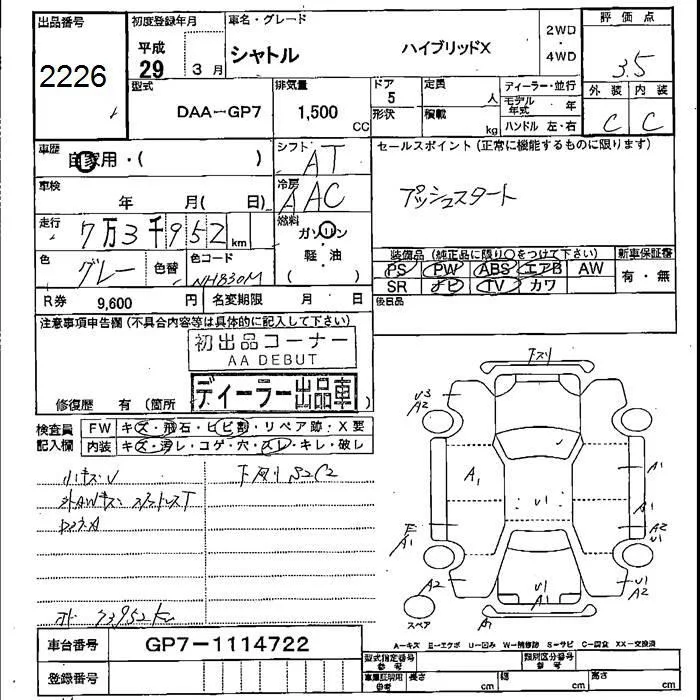 出品番号
2226
初度登録年月
平成
29 3月
車名・グレード
シャトル ハイブリッドX
2WD
・
4WD
評価点
3.5
外装 内装
C C
型式
DAA-GP7
排気量
1,500
CC
ドア
5
形状
定員
人
積載
kg
ディーラー・並行
モデル
年式 年
ハンドル 左・右
車歴
自家用・( )
シフト
AT
セールスポイント (正常に機能するものに限ります)
プッシュスタート
車検
年 月( 日)
冷房
AAC
走行
7万3千952km
燃料
ガソリン
・
軽油
( )
色
グレー
色替
色コード
NH830M
装備品 (純正品に限り○をつけて下さい)
新車保証書
PS PW ABS エアB AW
有・無
SR ナビ TV カワ
後日品
R券 9,600 円
名変期限 月 日
注意事項申告欄 (不具合内容等は具体的に記入して下さい)
初出品コーナー
AA DEBUT
ディーラー出品車
修復歴 有 (箇所 )
検査員
記入欄
FW キズ・飛石・ヒビ割・リペア跡・X要
内装 キズ・汚レ・コゲ・穴・スレ・キレ・破レ
小キズU
下廻りS2C2
73952km
下スリ
U3
A2
A1
A1
U1
A1
A2
U1
A1
A2
U1
A1
U1
A2
A1
スペア
A-キズ E-エクボ U-凹み W-補修跡 S-サビ C-腐食 XX-交換済
車台番号
GP7-1114722
登録番号
型式指定番号
参考
類別区分番号
参考
車庫証明用
参考
長さ cm
幅 cm
高さ cm